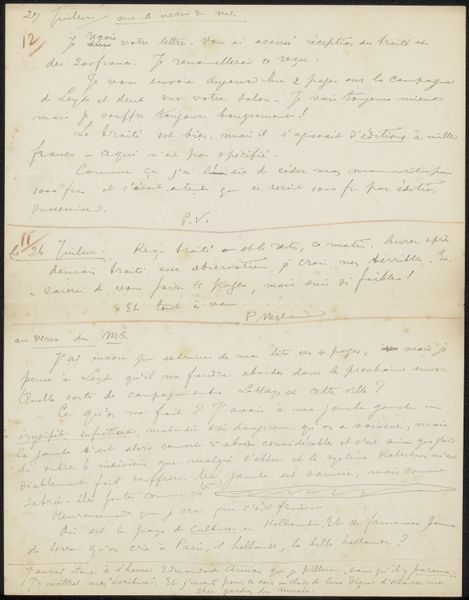 27 Juillet sur le verso du ms.
12 Je reçois votre lettre. Vous ai accusé réception du traité et
des 200 francs. Je renouvellerai ce reçu.
Je vous envoie aujourd'hui 2 pages sur la campagne
de Leyde et deux sur votre salon. Je vais toujours mieux
mais je souffre toujours bougrement!
Le traité est bien, mais il s'agissait d'éditions à mille
francs - ce qui n'est pas spécifié.
Comme ça j'ai de céder mes manuscrits pour
1000 frs et c'était entendu que ce serait 1000 fr par édition
successive.
P.V.
11
le 26 Juillet. Reçu traité et le reste, ce matin. Aurez après
demain traité avec observation je crois
d vous faire 4 pages, mais suis si faible!
Et tout à vous
P. Verlaine
au verso du Ms.
J'ai encore que extraire de ma tête ces 4 pages, mais je
pense à Leyde qu'il me faudra aborder dans le prochain envoi.
Quelle sorte de campagne entre La Haye et cette ville?
Ce qu'on me fait? J'avais à ma jambe gauche un
érysipèle infectieux, maladie très dangereuse qu'on a vaincue, mais
la jambe s'est alors couverte d'abcès considérable et c'est ainsi que
de subir 6 incisions que malgré l'éther et le système m'ont
diablement fait souffrir. Ma jambe est sauvée, mais comme
sabrée. Elle fentes comme ça
Heureusement que je crois que c'est fini.
Où est le pays de culture en Hollande, Et ces fameuses pommes
de terre qu'on crie à Paris, d'hollande, la belle hollande?
J'aurai tout à l'heure Edmond
J'y mettrai mon "écriture",
cher gardien du musée.